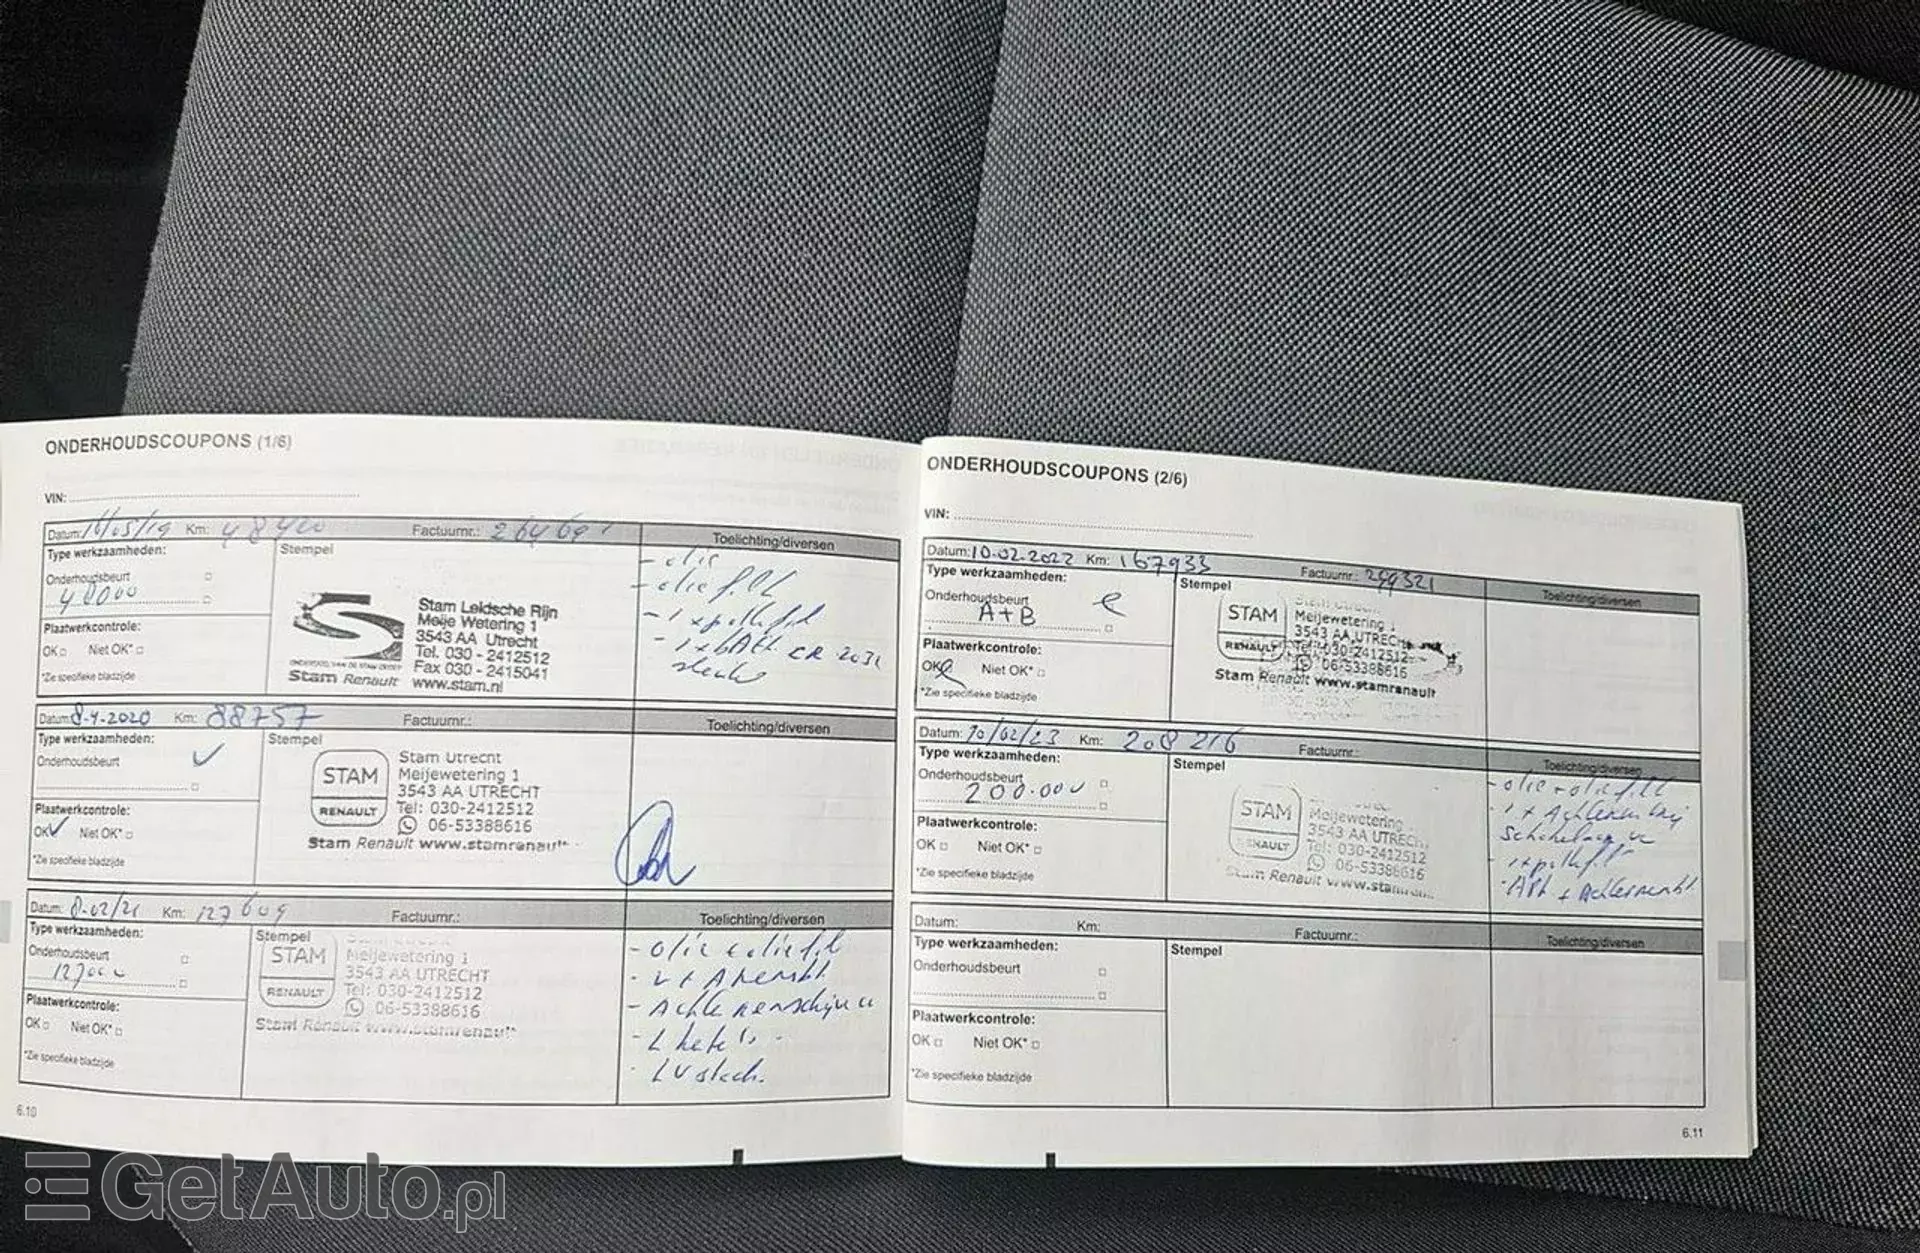 ONDERHOUDSCOUPONS (1/6)
VIN:
Datum: 16/05/19 Km: 48420 Factuurnr.: 264691 Toelichting/diversen
Type werkzaamheden: Stempel
Onderhoudsbeurt
Plaatwerkcontrole:
OK Niet OK*
*Zie specifieke bladzijde
Stam Leidsche Rijn
Meije Wetering 1
3543 AA Utrecht
Tel. 030 - 2412512
Fax 030 - 2415041
Stam Renault www.stam.nl
- olie
- olie filt
Datum: 8-4-2020 Km: 88757 Factuurnr.: Toelichting/diversen
Type werkzaamheden: Stempel
Onderhoudsbeurt
Plaatwerkcontrole:
OK Niet OK*
*Zie specifieke bladzijde
STAM
RENAULT
Stam Utrecht
Meijewetering 1
3543 AA UTRECHT
Tel: 030-2412512
06-53388616
Stam Renault www.stamrenault
Datum: 8-02/21 Km: 127609 Factuurnr.: Toelichting/diversen
Type werkzaamheden: Stempel
Onderhoudsbeurt
Plaatwerkcontrole:
OK Niet OK*
*Zie specifieke bladzijde
STAM
RENAULT
Meijewetering 1
3543 AA UTRECHT
Tel: 030-2412512
06-53388616
Stam Renault www.stamrenault
6.10
ONDERHOUDSCOUPONS (2/6)
VIN:
Datum: 10-02-2022 Km: 167933 Factuurnr.: 299321 Toelichting/diversen
Type werkzaamheden: Stempel
Onderhoudsbeurt
A+B
Plaatwerkcontrole:
OK Niet OK*
*Zie specifieke bladzijde
STAM
RENAULT
Meijewetering 1
3543 AA UTRECHT
Tel: 030-2412512
06-53388616
Stam Renault www.stamrenault
Datum: 10/02/23 Km: 208216 Factuurnr.: Toelichting/diversen
Type werkzaamheden: Stempel
Onderhoudsbeurt
200.000
Plaatwerkcontrole:
OK Niet OK*
*Zie specifieke bladzijde
STAM
RENAULT
Meijewetering
3543 AA UTREC
Tel: 030-2412512
06-53388616
Stam Renault www.stam
Datum: Km: Factuurnr.: Toelichting/diversen
Type werkzaamheden: Stempel
Onderhoudsbeurt
Plaatwerkcontrole:
OK Niet OK*
*Zie specifieke bladzijde
6.11
GetAuto.pl